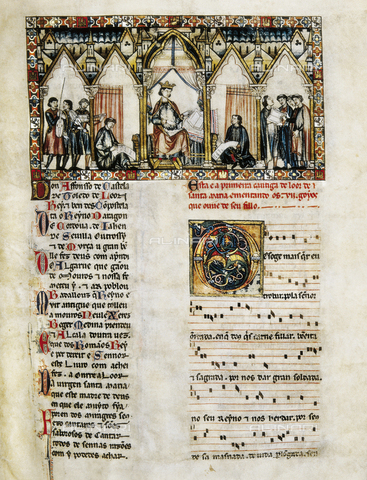 Don Affonso de Castela
de Toledo de Leon
Rey e ben des Compostela
ta o Reyno Daragon
De Cordova de Jahen
de Sevilla outrossi
e de Murça u gran ben
lle fez deus com apndi
Do Algarve que gãou
de mouros e nossa fe
meteu y e ar poblou
Badallous que Reyno e
muit antigo que tolleu
a mouros Neul e Xeres
Beger Medina prendeu
e Alcala doutra vez
que dos Romãos Rey
e per dereit e Sennor
este Livro com achei
fez a onrre e Loor
da virgen santa maria
que este madre de deus
en que ele muito fia
poren dos miragres seus
fezo cantares e sões
saborosos de cantar
todos de sennas razões
com y podedes achar.
Esta e a primeira cantiga de loor de s
santa maria ementando os .vii. goyos
que ouve de seu fillo.
Des oge mais quer eu
trobar. pola sennor
onrrada. en que deus quis carne fillar. bẽeita
e sagrada. por nos dar gran soldada.
no seu Reyno e nos herdar. por seus
de sa masnada. de vida perlongada. sen